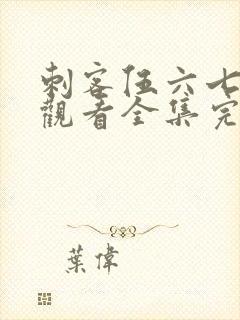 刺客伍六七
觀看全集完
葉偉